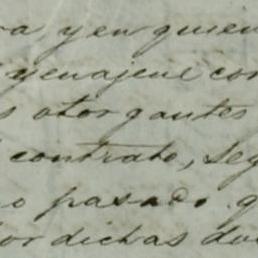 ra, y en quien
y enajene con
s otorgantes
contrato, seg
o pasado q
or dichas do